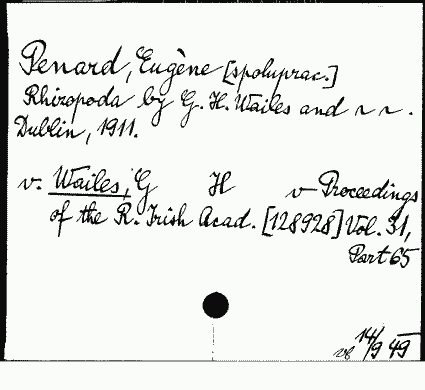 Penard, Eugène [spoluprac.]
Rhizopoda by G. H. Wailes and ~ ~.
Dublin, 1911.
v. Wailes, G H v Proceedings
of the R. Irish Acad. [128928] Vol. 31,
Part 65
14/9 49